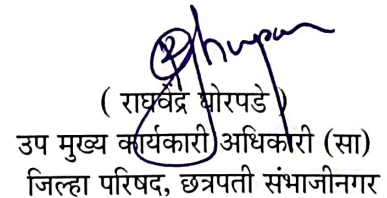 ( राघवेंद्र घोरपडे )
उप मुख्य कार्यकारी अधिकारी (सा)
जिल्हा परिषद, छत्रपती संभाजीनगर